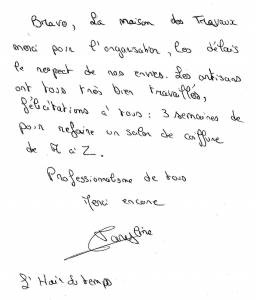 Bravo, La maison des Travaux
merci pour l'organisation, les délais
le respect de nos envies. Les artisans
ont tous très bien travaillés,
félicitations à tous : 3 semaines de
pour refaire un salon de coiffure
de A à Z.
Professionnalisme de tous
Merci encore
L'Hair du temps